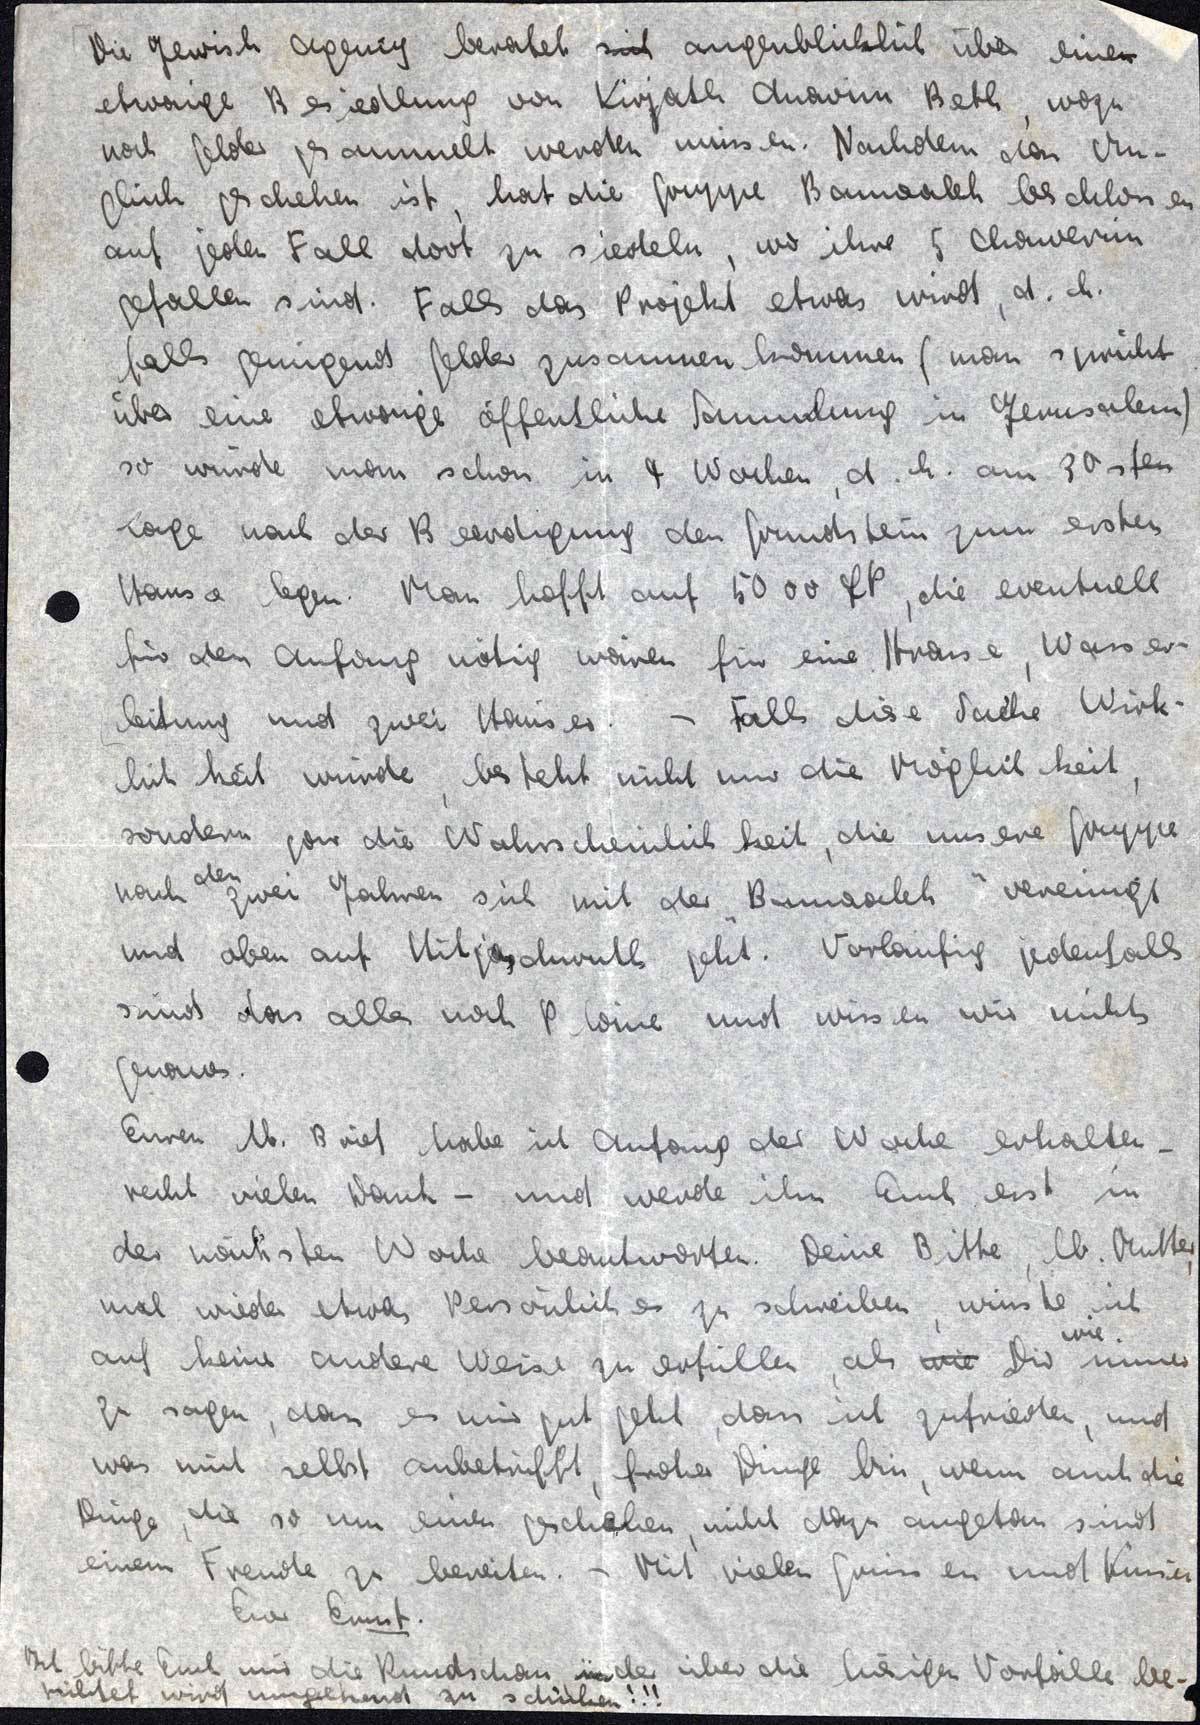 Die Jewish Agency beratet sich augenblicklich über einen
etwaige Besiedlung von Kirjath Anavim Beth, wozu
noch Gelder gesammelt werden müssen. Nachdem das Un-
glück geschehen ist, hat die Gruppe Bamaaleh beschlossen
auf jeden Fall dort zu siedeln, wo ihre 5 Chawerim
gefallen sind. Falls das Projekt etwas wird, d. h.
falls genügend Gelder zusammen kommen (man spricht
über eine etwaige öffentliche Sammlung in Jerusalem)
so würde man schon in 4 Wochen, d. h. am 30sten
Tage nach der Beerdigung den Grundstein zum ersten
Hause legen. Man hofft auf 5000 £P, die eventuell
für den Anfang nötig wären für eine Strasse, Wasser-
leitung und zwei Häuser. – Falls diese Sache Wirk-
lichkeit würde, besteht nicht nur die Möglichkeit,
sondern gar die Wahrscheinlichkeit, die unsere Gruppe
nach den zwei Jahren sich mit der "Bamaaleh" vereinigt
und oben auf Hitjaschwuth geht. Vorläufig jedenfalls
sind das alles noch Pläne und wissen wir nichts
genaues.
Euren lb. Brief habe ich Anfang der Woche erhalten –
recht vielen Dank – und werde ihn Euch erst in
der nächsten Woche beantworten. Deine Bitte, lb. Mutter,
mal wieder etwas Persönliches zu schreiben, wüsste ich
auf keine andere Weise zu erfüllen, als wie Dir wie immer
zu sagen, dass es mir gut geht, dass ich zufrieden, und
was mich selbst anbetrifft, froher Dinge bin, wenn auch die
Dinge, die so um einen geschehen, nicht dazu angetan sind
einem Freude zu bereiten. – Mit vielen Grüssen und Küssen
Euer Ernst.
Ich bitte Euch mir die Rundschau in der über die hiesigen Vorfälle be-
richtet wird umgehend zu schicken!!!